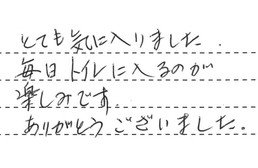 とても気に入りました.
毎日トイレに入るのが
楽しみです.
ありがとうございました。